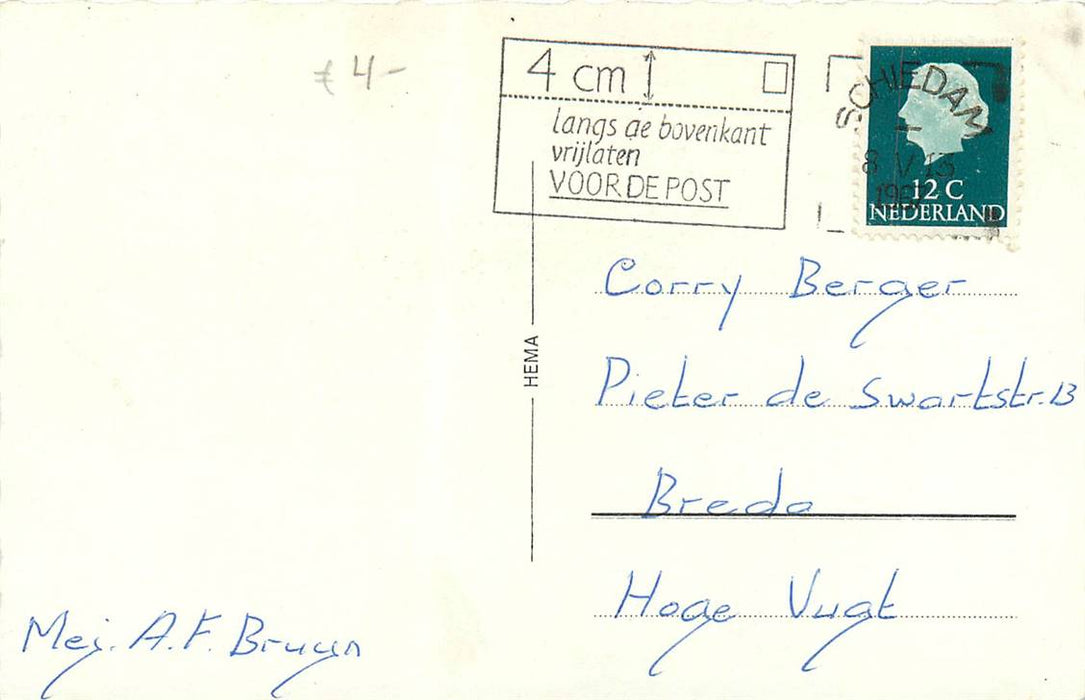 € 4-
4 cm
langs de bovenkant
vrijlaten
VOOR DE POST
SCHIEDAM
8 V 13
12 C
NEDERLAND
HEMA
Corry Berger
Pieter de Swartstr. 13
Breda
Hoge Vugt
Mej. A.F. Bruyn